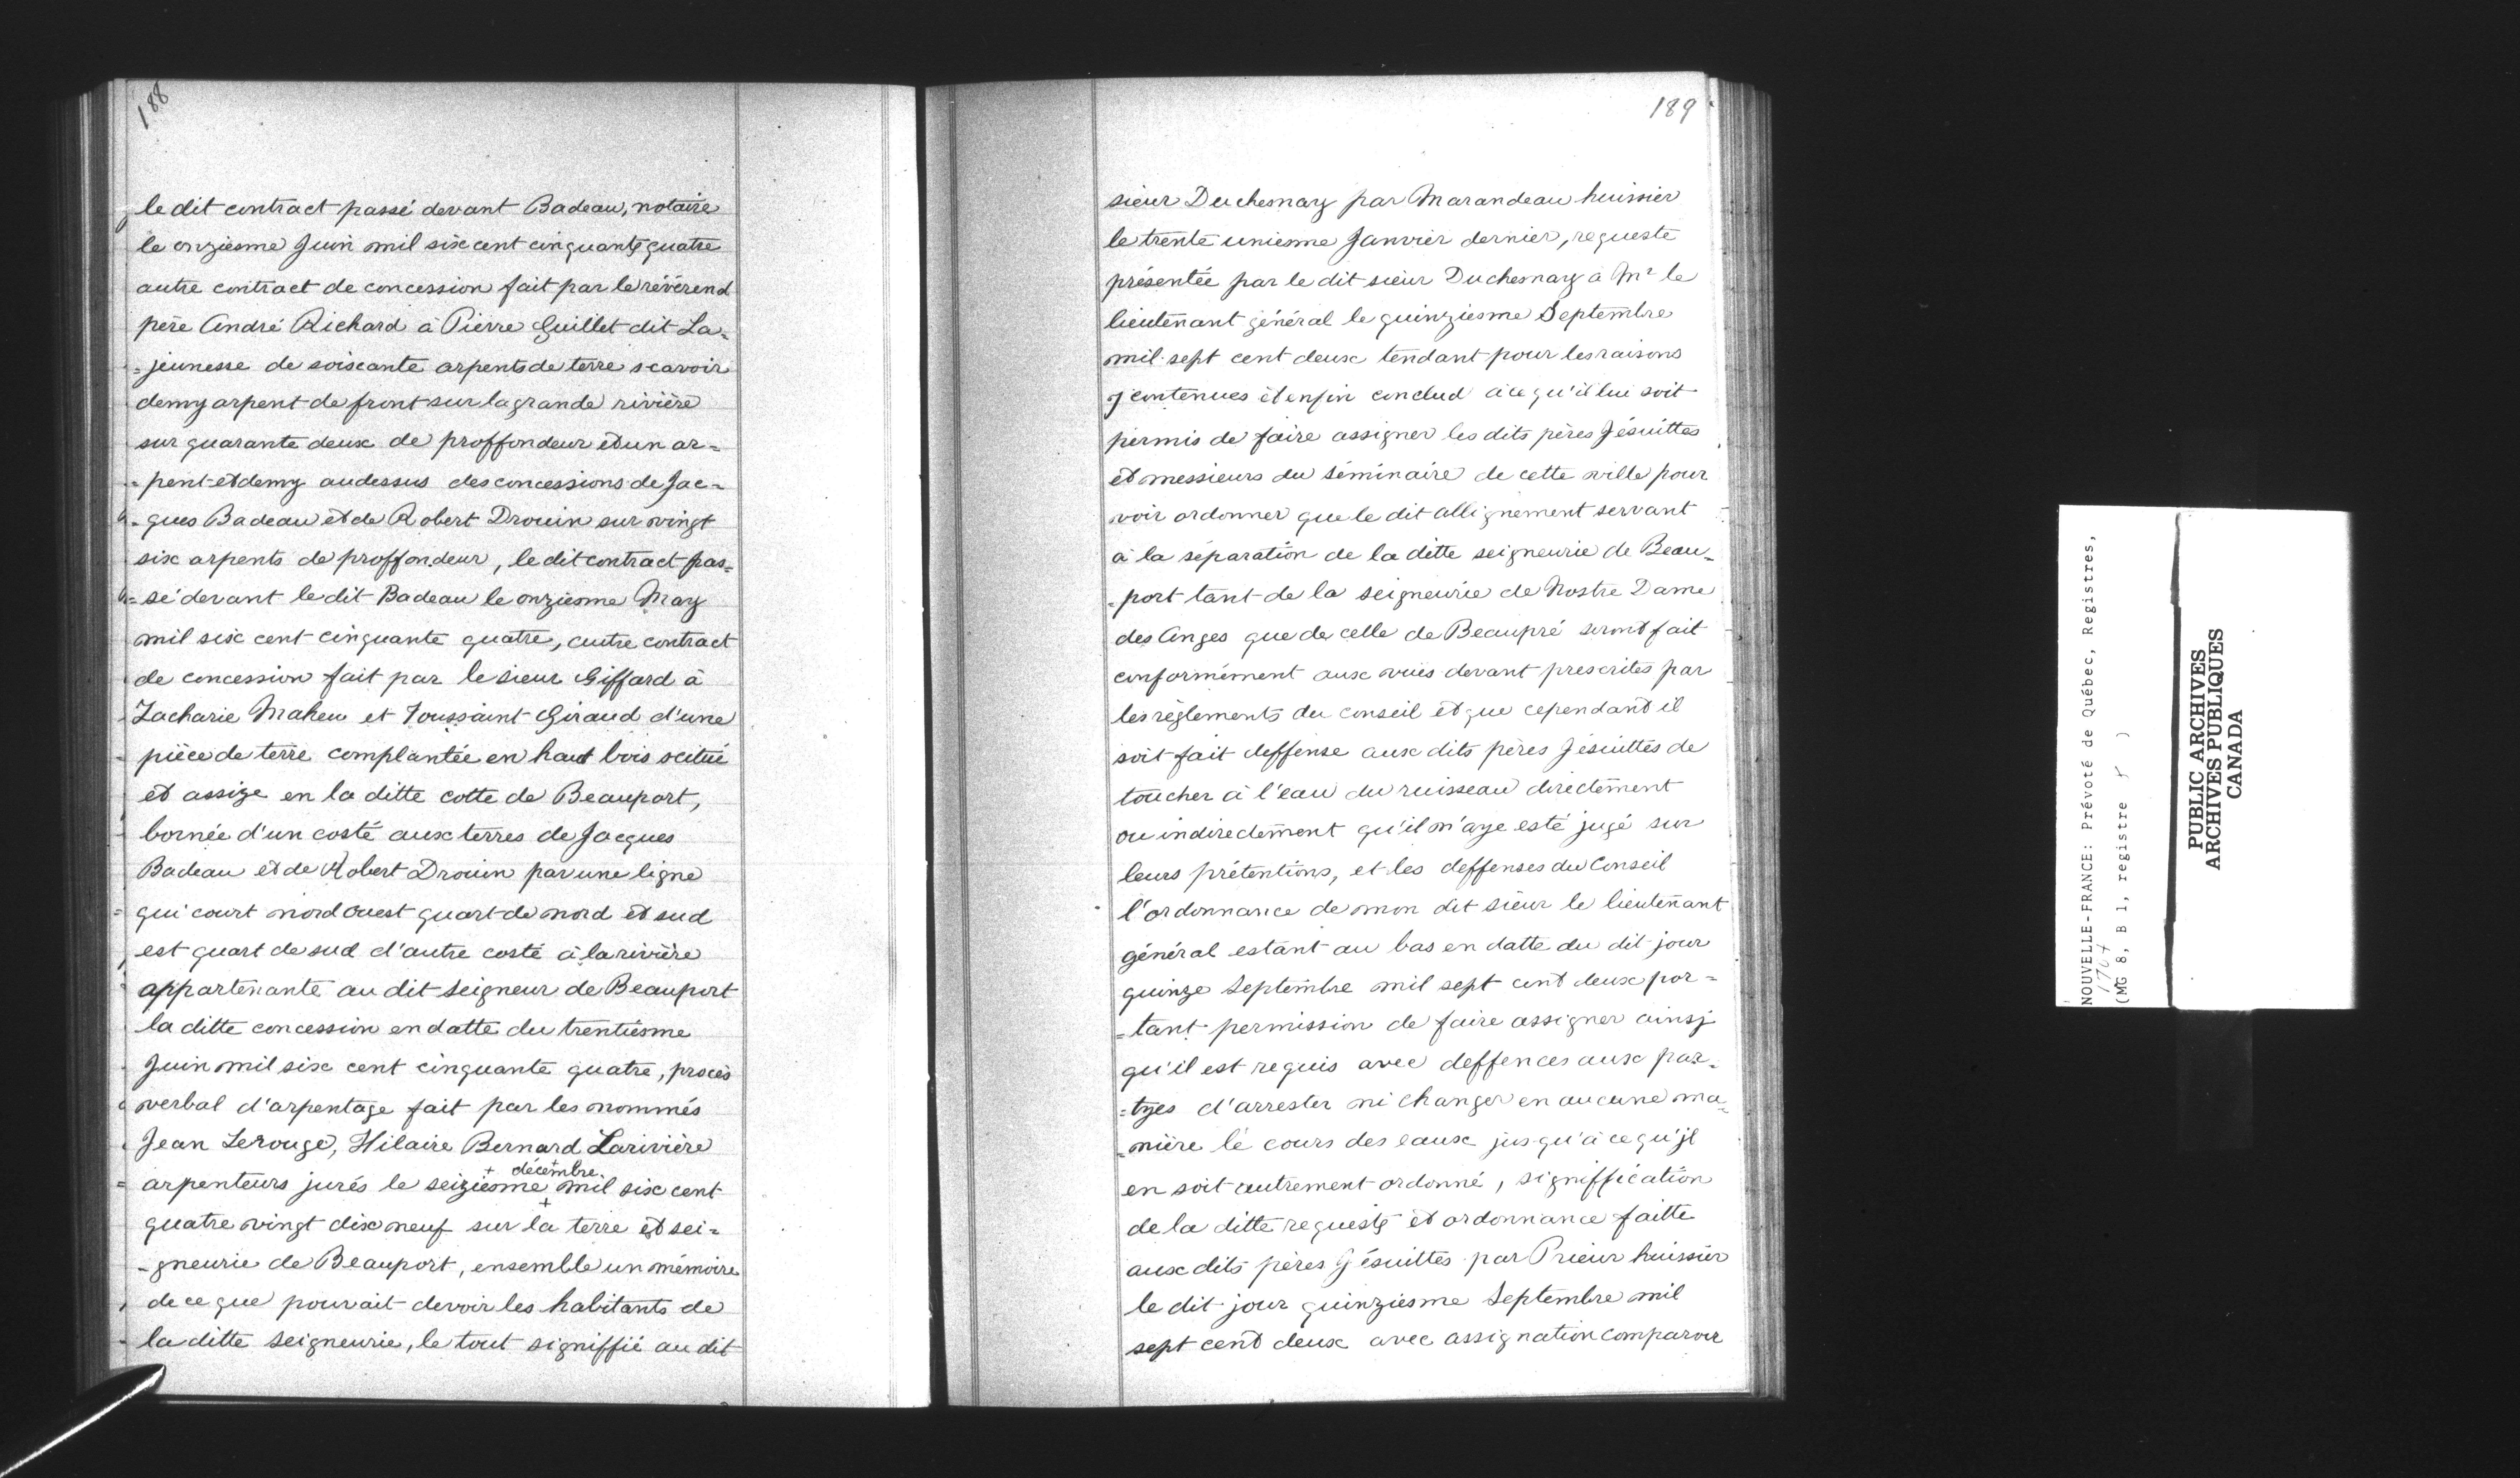 188
le dit contract passé devant Badeau, notaire
le onziesme Juin mil six cent cinquante quatre
autre contract de concession fait par le révérend
père André Richard à Pierre Guillet dit La=
=jeunesse de soixante arpents de terre scavoir
demy arpent de front sur la grande rivière
sur quarante deux de proffondeur et un ar=
=pent et demy audessus des concessions de Jac=
=ques Badeau et de Robert Drouin sur vingt
six arpents de proffondeur, le dit contract pas=
=sé devant le dit Badeau le onziesme May
mil six cent cinquante quatre, autre contract
de concession fait par le sieur Giffard à
Zacharie Maheu et Toussaint Giraud d'une
pièce de terre complantée en haut bois scitué
et assize en la ditte cotte de Beauport,
bornée d'un costé aux terres de Jacques
Badeau et de Robert Drouin par une ligne
qui court nord ouest quart de nord et sud
est quart de sud d'autre costé à la rivière
appartenante au dit seigneur de Beauport
la ditte concession en datte du trentiesme
Juin mil six cent cinquante quatre, procès
verbal d'arpentage fait par les nommés
Jean Lerouge, Hilaire Bernard Larivière
+ décembre
arpenteurs jurés le seiziesme + mil six cent
quatre vingt dix neuf sur la terre et sei=
=gneurie de Beauport, ensemble un mémoire
de ce que pouvait devoir les habitants de
la ditte seigneurie, le tout signiffié au dit
189
sieur Duchesnay par Marandeau huissier
le trente uniesme Janvier dernier, requeste
présentée par le dit sieur Duchesnay à Mr le
lieutenant général le quinziesme Septembre
mil sept cent deux tendant pour les raisons
y contenues et enfin conclud à ce qu'il lui soit
permis de faire assigner les dits pères Jésuittes
et messieurs du séminaire de cette ville pour
voir ordonner que le dit allignement servant
à la séparation de la ditte seigneurie de Beau=
=port tant de la seigneurie de Nostre Dame
des Anges que de celle de Beaupré seront fait
conformément aux vuës devant prescrites par
les règlements du conseil et que cependant il
soit fait deffense aux dits pères Jésuittes de
toucher à l'eau du ruisseau directement
ou indirectement qu'il n'aye esté jugé sur
leurs prétentions, et les deffenses du Conseil
l'ordonnance de mon dit sieur le lieutenant
général estant au bas en datte du dit jour
quinze Septembre mil sept cent deux por=
=tant permission de faire assigner ainsj
qu'il est requis avec deffences aux par=
=tyes d'arrester ni changer en aucune ma=
=nière le cours des eaux jusqu'à ce qu'jl
en soit autrement ordonné, signiffication
de la ditte requeste et ordonnance faitte
aux dits pères Jésuittes par Prieur huissier
le dit jour quinziesme Septembre mil
sept cent deux avec assignation comparoir
NOUVELLE-FRANCE: Prévoté de Québec, Registres,
1707
(MG 8, B 1, registre )
PUBLIC ARCHIVES
ARCHIVES PUBLIQUES
CANADA